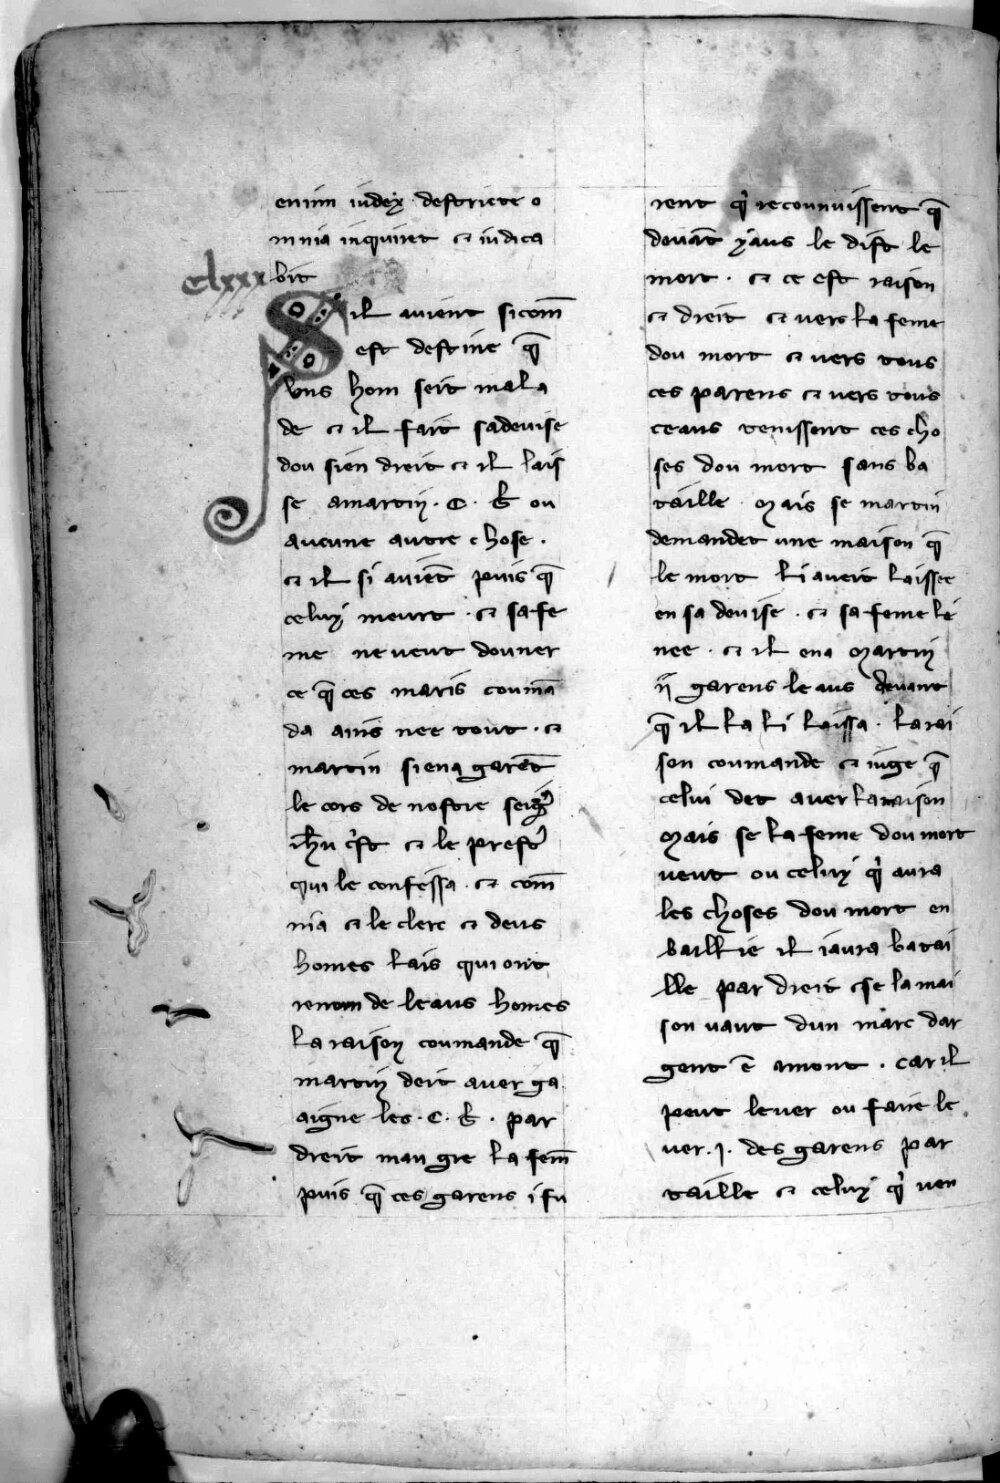 enim iudex destricte o
mnia inquiret ⁊ iudica
clxxx bit
Sil auient sicom̄
est destine q̄
vns hom seit mala
de ⁊ il fait sadeuise
dou sien dreit ⁊ il lais
se amartin · C · ou
aucune autre chose ·
⁊ il si auiēt puis q̄
celuy meurt · ⁊ safe
me neueut donner
ce q̄ ces maris coumā
da ains nee tout · ⁊
martin siena garēt
le cors de nostre seigr̉
ih̄u cͥst ⁊ le prest̉
qui le confessa · ⁊ com̄
nia ⁊ le clerc ⁊ deus
homes lais qui ont
renom de leaus homes
la raison coumande q̄
martin deit auer ga
aigne les · C · par
dreit mau gre la fem̄
puis q̄ ces garens i fu
rent qͥ reconnuissent q̄
deuāt yaus le dist le
mort · ⁊ ce est raison
⁊ dreit ⁊ vers la feme
dou mort ⁊ vers tous
ces parens ⁊ vers tous
ceaus tenissent ces cho
ses dou mort sans ba
taille · Mais se martin
demandet une maison q̄
le mort li aueit laissee
en sa deuise · ⁊ sa feme le
nee · ⁊ il ena Martin
ij garens leaus deuant
q̄ il la li laissa · la rai
son coumande ⁊ iuge q̄
celui det auer lamaison
Mais se la feme dou mort
veut ou celuy qͥ aura
les choses dou mort en
baillie il iaura batai
lle par dreit se la mai
son vaut dun marc dar
gent ē amont · car il
peut leuer ou faire le
uer · j · des garens par
taille ⁊ celuy qͥ ven